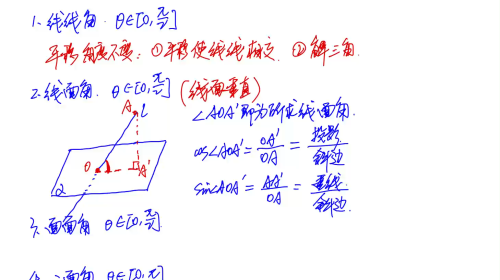 1. 线线角. θ∈[0, π/2]
平移角度不变: ①平移使线线相交. ②解三角.
2. 线面角. θ∈[0, π/2] (线面垂直)
A l
∠AOA'即为所求线面角.
cos∠AOA' = OA'/OA = 投影/斜边
O A'
sin∠AOA' = AA'/OA = 垂线/斜边
α
3. 面面角 θ∈[0, π/2]
θ∈[0, π]